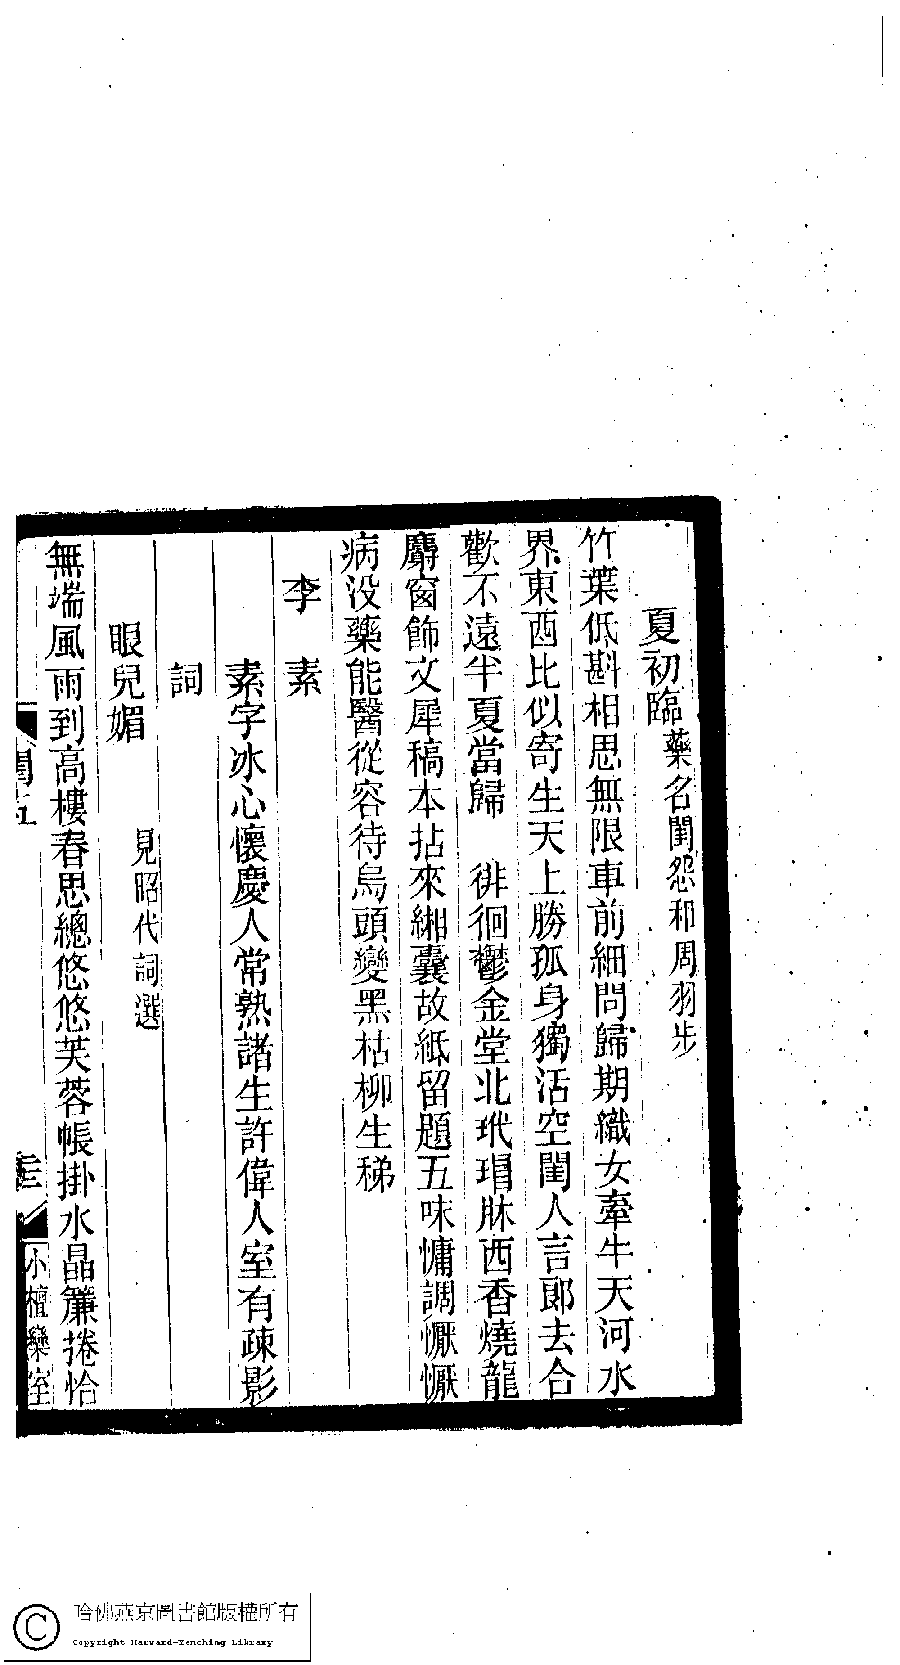 夏初臨藥名閨怨和周羽步
竹葉低斟相思無限車前細問歸期織女牽牛天河水
界東西比似寄生天上勝孤身獨活空閨人言郞去合
歡不遠半夏當歸　徘徊鬱金堂北玳瑁牀西香燒龍
麝窗飾文犀稿本拈來緗囊故紙留題五味慵調懨懨
病没藥能醫從容待烏頭變黑枯柳生稊
李　素
素字冰心懷慶人常熟諸生許偉人室有疎影
詞
眼兒媚　見昭代詞選
無端風雨到高樓春思總悠悠芙蓉帳掛水晶簾捲恰
小檀欒室
哈佛燕京圖書館版權所有
Copyright Harvard-Yenching Library